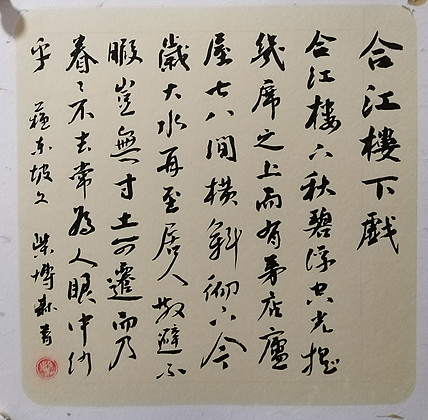 合江樓下戲
合江樓下秋碧浮空光搖
幾席之上而有茅店廬
屋七八間橫斜砌下今
歲大水再至居人散避不
暇豈無寸土可遷而乃
眷〻不去常為人眼中沙
乎 蘇東坡文 柴博